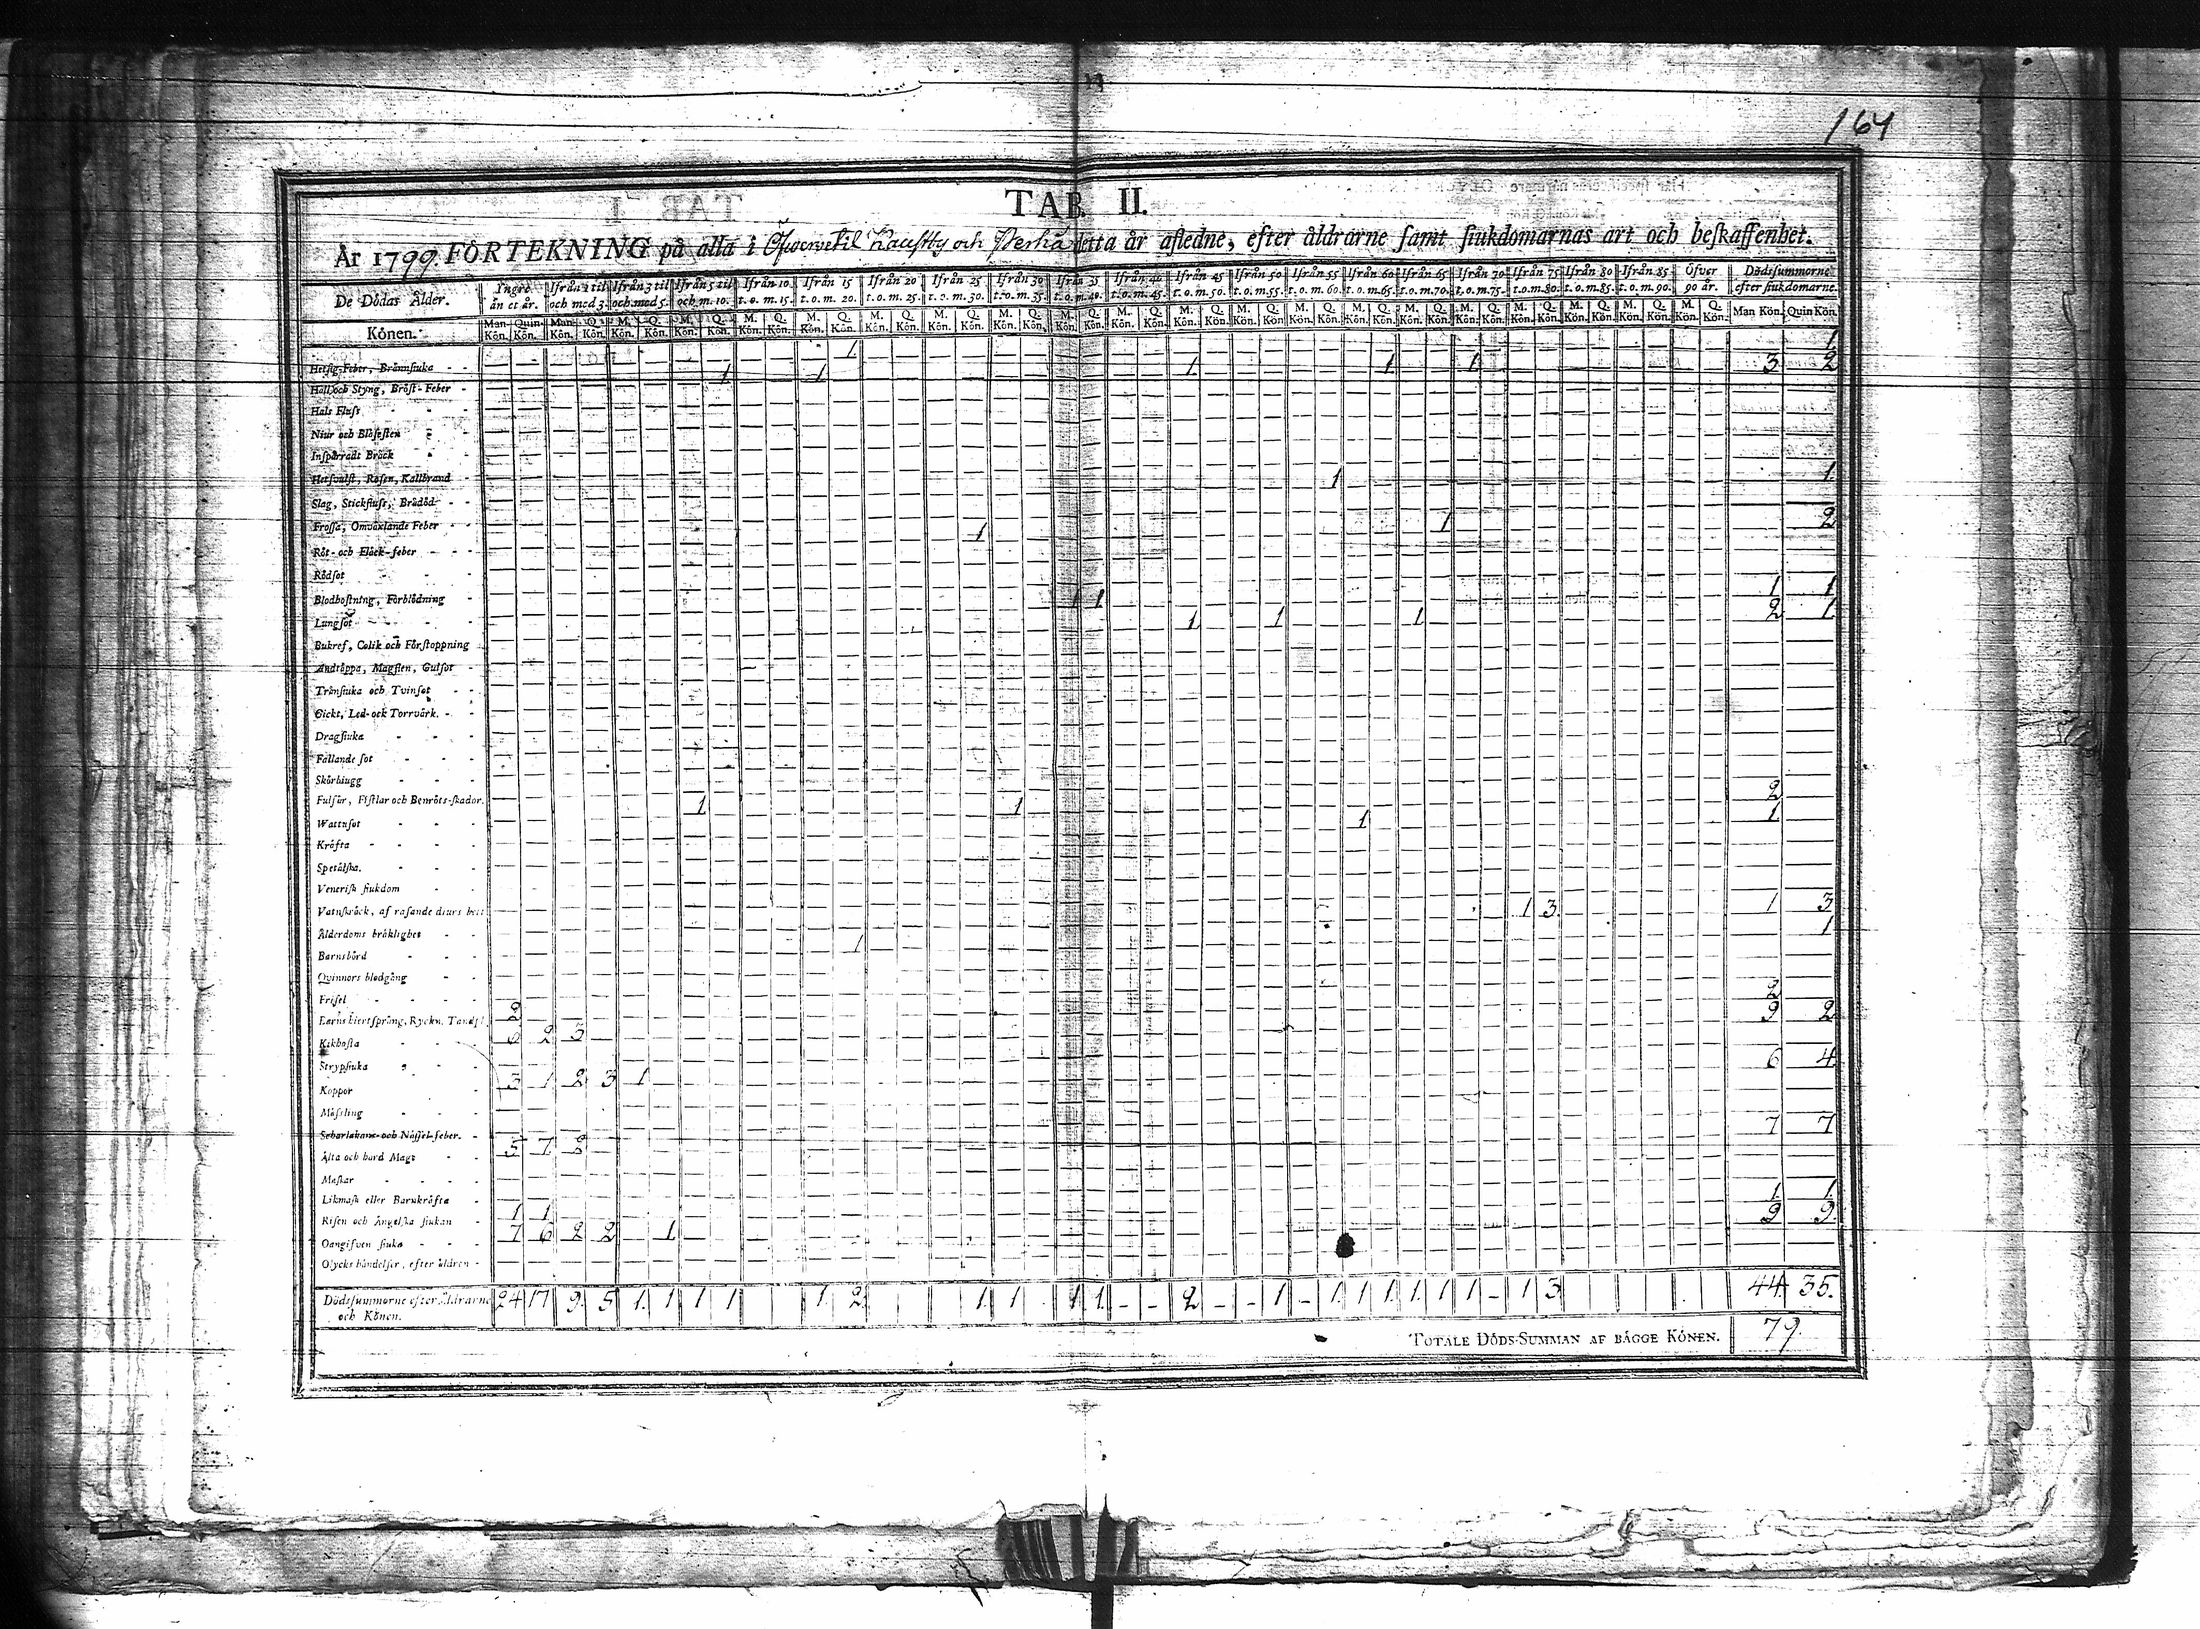 164
TAB. II.
År 1799. FÖRTEKNING på alla i Öfwervetil Kaustby och Perho detta år afledne, efter åldrarne samt siukdomarnas art och beskaffenhet.
De Dödas Ålder. Yngre än et år. Ifrån 1 til och med 3. Ifrån 3 til och med 5. Ifrån 5 til och m. 10. Ifrån 10 t. o. m. 15. Ifrån 15 t. o. m. 20. Ifrån 20 t. o. m. 25. Ifrån 25 t. o. m. 30. Ifrån 30 t. o. m. 35. Ifrån 35 t. o. m. 40. Ifrån 40 t. o. m. 45. Ifrån 45 t. o. m. 50. Ifrån 50 t. o. m. 55. Ifrån 55 t. o. m. 60. Ifrån 60 t. o. m. 65. Ifrån 65 t. o. m. 70. Ifrån 70 t. o. m. 75. Ifrån 75 t. o. m. 80. Ifrån 80 t. o. m. 85. Ifrån 85 t. o. m. 90. Öfver 90 år. Dödssummorne efter siukdomarne.
Könen. Man Kön. Quin Kön. Man Kön. Q. Kön. M. Kön. Q. Kön. M. Kön. Q. Kön. M. Kön. Q. Kön. M. Kön. Q. Kön. M. Kön. Q. Kön. M. Kön. Q. Kön. M. Kön. Q. Kön. M. Kön. Q. Kön. M. Kön. Q. Kön. M. Kön. Q. Kön. M. Kön. Q. Kön. M. Kön. Q. Kön. M. Kön. Q. Kön. M. Kön. Q. Kön. M. Kön. Q. Kön. M. Kön. Q. Kön. M. Kön. Q. Kön. M. Kön. Q. Kön. M. Kön. Q. Kön. Man Kön. Quin Kön.
1 1
Hetsig-Feber, Brännsiuka 1 1 1 1 1 3 2
Håll och Styng, Bröst-Feber
Hals Fluss
Niur och Blåsesten
Inspärradt Bråck
Hetsvulst, Rosen, Kallbrand 1 1
Slag, Stickfluss, Brådöd
Frossa, Omväxlande Feber 1 1 2
Röt- och Fläck-feber
Rödsot
Blodhostning, Förblödning 1 1 1 1
Lungsot 1 1 1 2 1
Bukref, Colik och Förstoppning
Andtäppa, Magsten, Gulsot
Trånsiuka och Tvinsot
Gickt, Led- och Torrvärk.
Dragsiuka
Fallande sot
Skörbiugg
Fulsår, Fistlar och Benröts-skador. 1 1 2
Wattusot 1 1
Kräfta
Spetälska.
Venerisk siukdom
Vatuskräck, af rasande diurs bett 1 3 1 3
Ålderdoms bräklighet 1 1
Barnsbörd
Qvinnors blodgång
Frisel 2
Barns hiertsprång, Ryckn. Tandsl. 2 9 2
Kikhosta 6 2 3
Strypsiuka 6 4
Koppor 3 1 2 3 1
Mässling
Scharlakans- och Nässel-feber. 7 7
Älta och hård Mage 5 7 2
Maskar
Likmask eller Barnkräfta 1 1
Risen och Ängelska siukan 1 1 9 9
Oangifven siuka 7 6 2 2 1
Olycks händelser, efter äldren
Dödssummorne efter åldrarne och Könen. 24 17 9. 5 1. 1 1 1 1. 2. 1. 1 1. 1. - - 2 - - 1 - 1. 1 1 1. 1 1 - 1 3 44. 35.
TOTALE DÖDS-SUMMAN AF BÄGGE KÖNEN. 79.